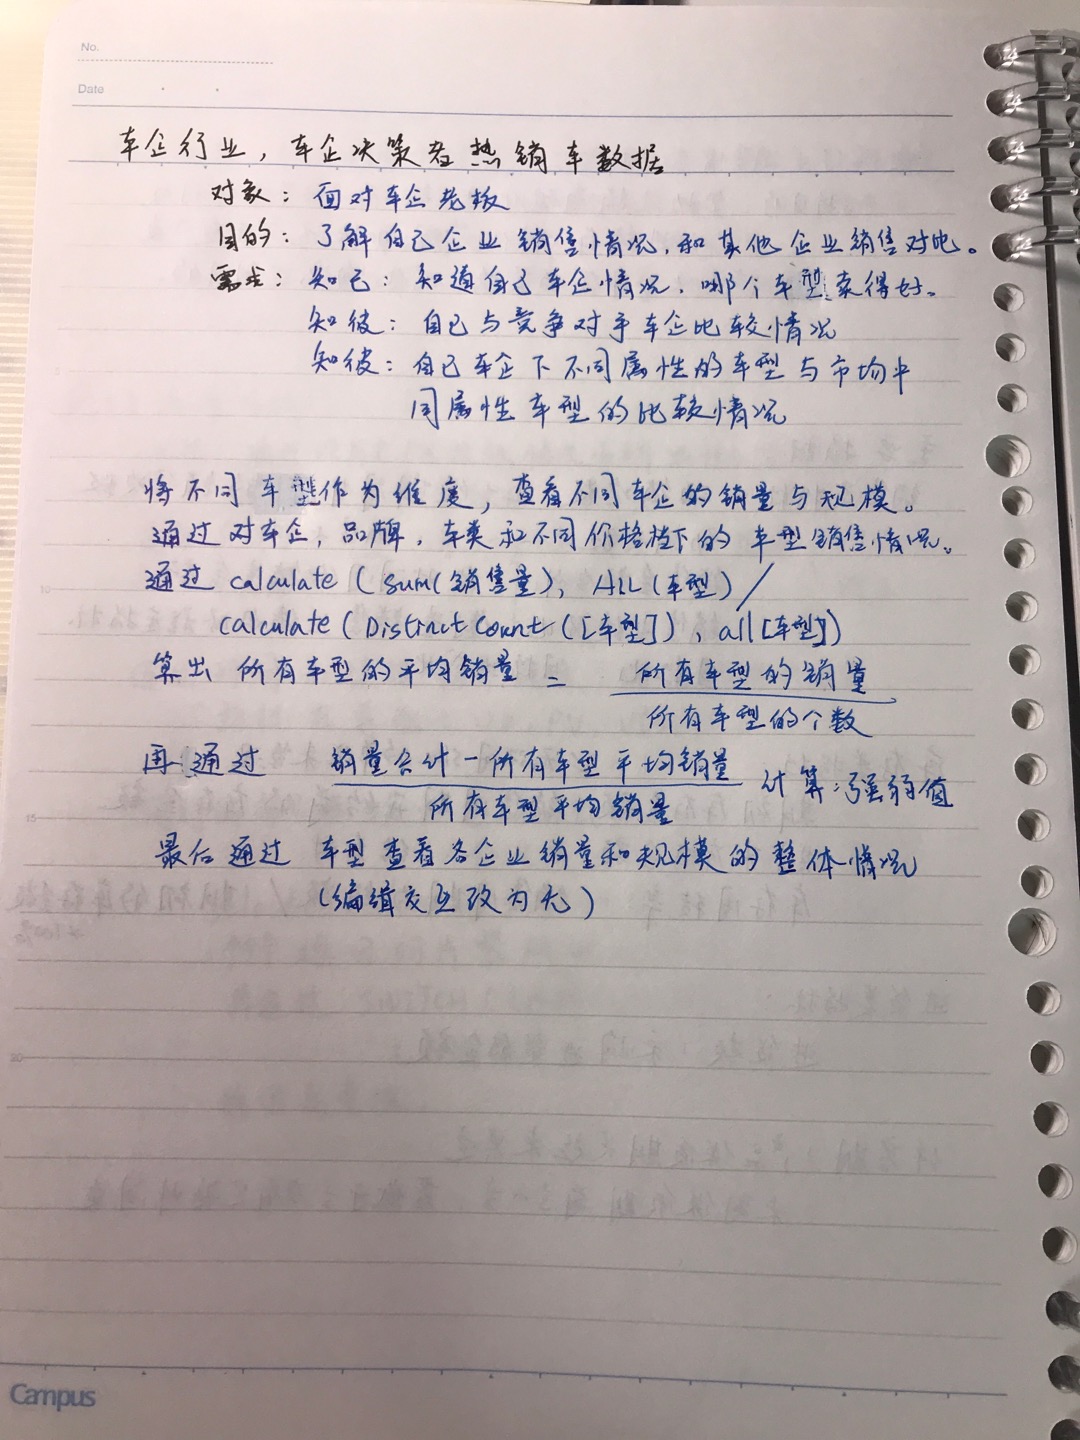 No.
Date
车企行业，车企决策者热销车数据
对象：面对车企老板
目的：了解自己企业销售情况，和其他企业销售对比。
需求：知己：知道自己车企情况，哪个车型卖得好。
知彼：自己与竞争对手车企比较情况
知彼：自己车企下不同属性的车型与市场中
同属性车型的比较情况
将不同车型作为维度，查看不同车企的销量与规模。
通过对车企，品牌，车类和不同价格档下的车型销售情况。
通过 calculate ( sum(销售量), ALL (车型) /
calculate ( Distinct Count ([车型]), all[车型])
算出 所有车型的平均销量 = 所有车型的销量
所有车型的个数
再通过 销量合计-所有车型平均销量 计算：强弱值
所有车型平均销量
最后通过 车型查看各企业销量和规模的整体情况
(编辑交互改为无)
10
15
20
Campus